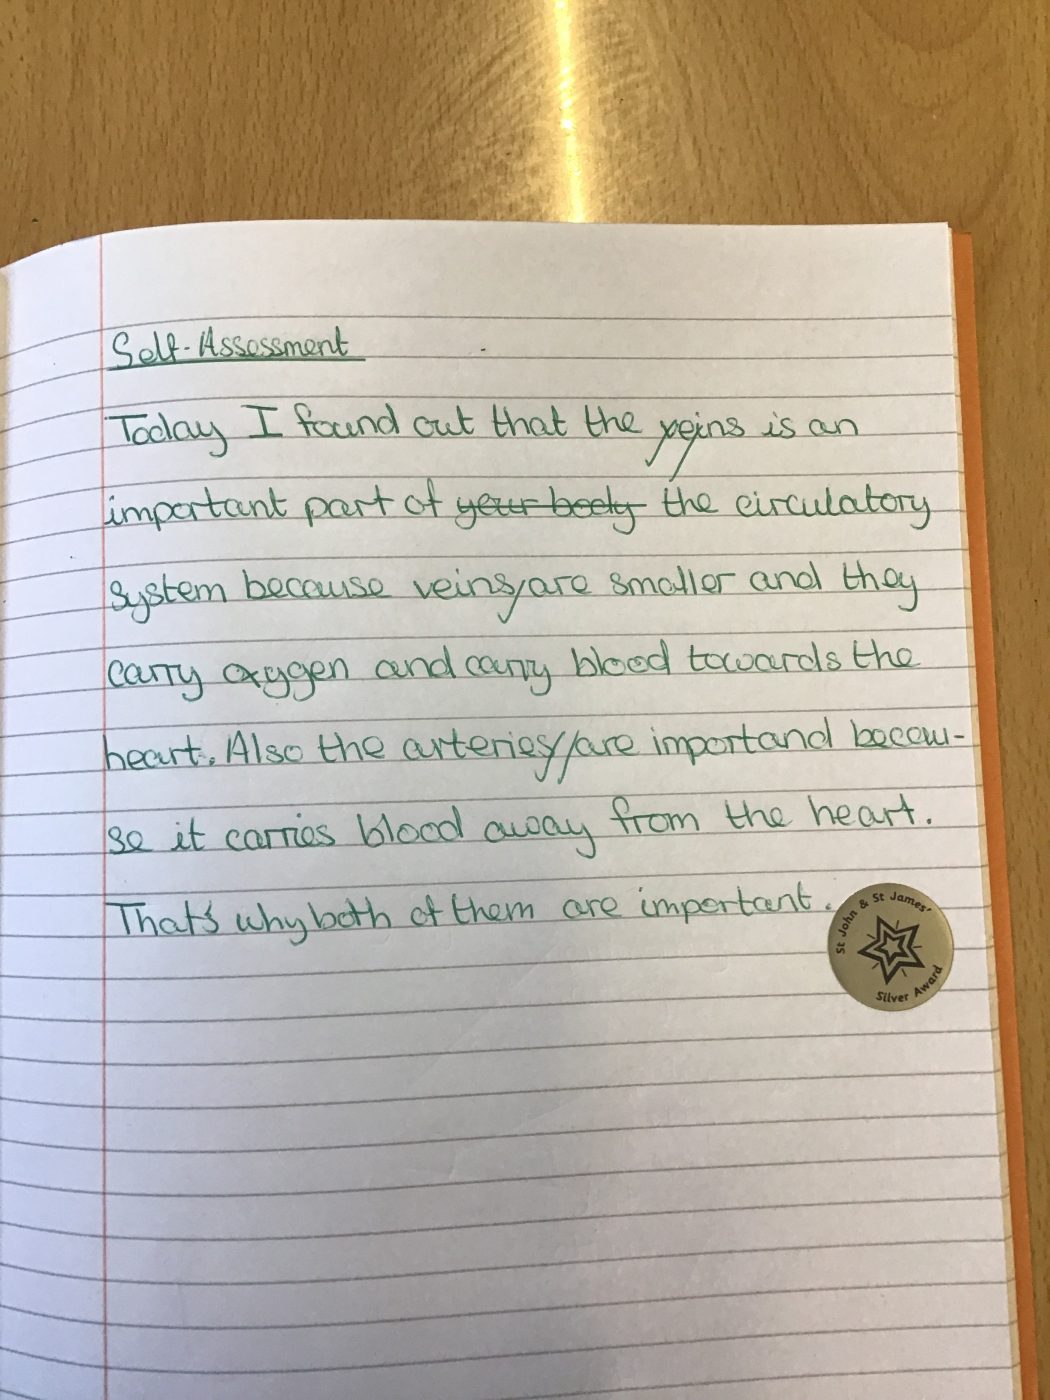 Self-Assessment
Today I found out that the veins is an
important part of your body the circulatory
system because veins/are smaller and they
carry oxygen and carry blood towards the
heart. Also the arteries//are importand becau-
se it carries blood away from the heart.
That's why both of them are important.
St John & St James'
Silver Award